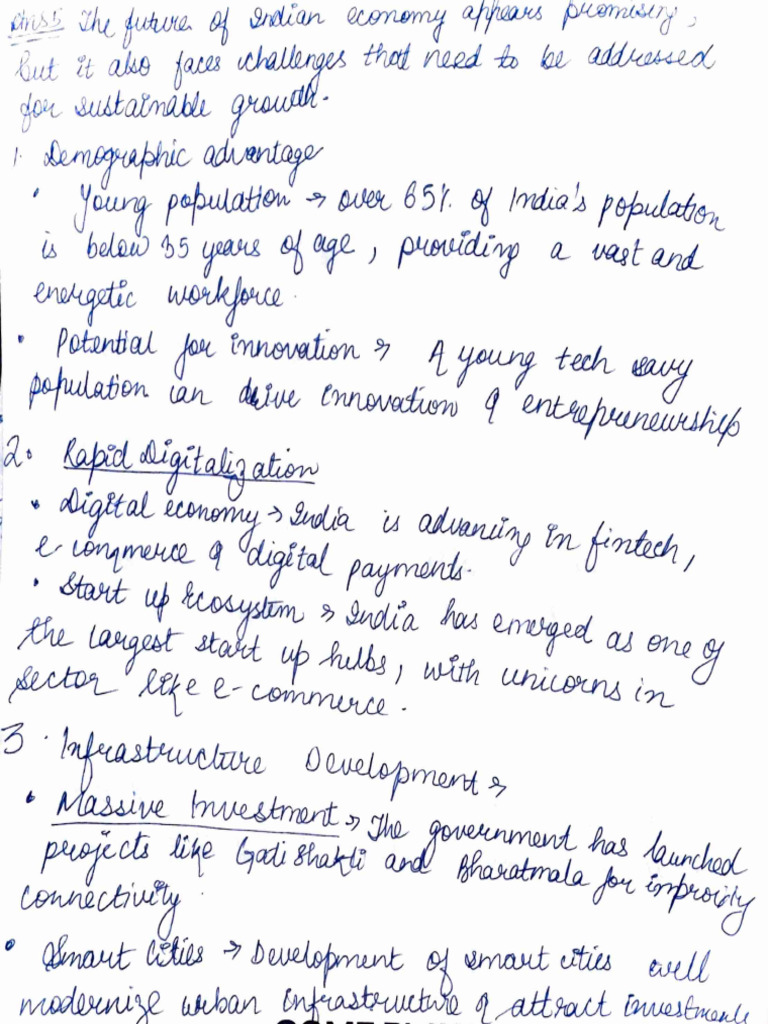 Ans 5 The future of Indian economy appears promising,
but it also faces challenges that need to be addressed
for sustainable growth.
1. Demographic advantage
• Young population → over 65% of India's population
is below 35 years of age, providing a vast and
energetic workforce.
• Potential for innovation → A young tech savy
population can drive innovation & entrepreneurship
2. Rapid Digitalization
• Digital economy → India is advancing in fintech,
e-commerce & digital payments.
• Start up Ecosystem → India has emerged as one of
the largest start up hubs, with unicorns in
sector like e-commerce.
3. Infrastructure Development →
• Massive Investment → The government has launched
projects like Gati Shakti and Bharatmala for improving
connectivity.
• Smart Cities → Development of smart cities will
modernize urban infrastructure & attract investments